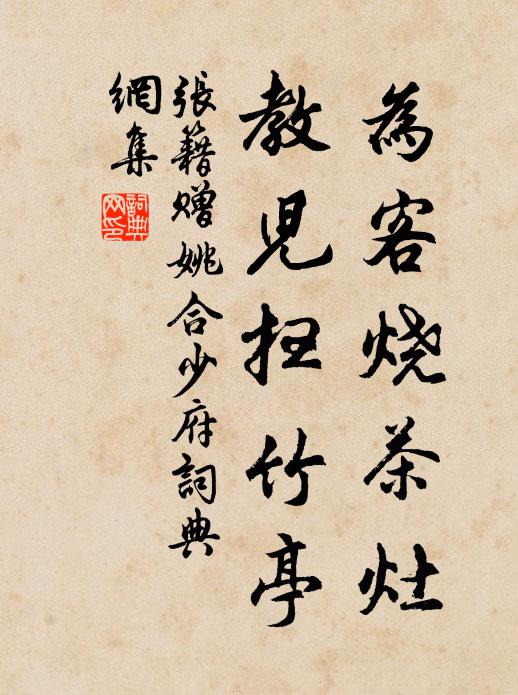 為客烧茶灶
教児扫竹亭
張籍贈姚合少府詞典
網集
詞典
网印